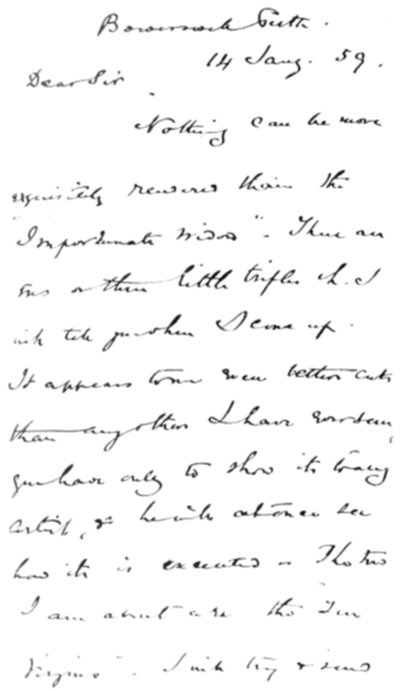 Bowerswell Perth.
14 Jany. 59.
Dear Sir
Nothing can be more
exquisitely rendered than the
"Importunate Widow". There are
two or three little trifles wh. I
will tell you when I come up.
It appears to me even better cut
than any other I have you
you have only to show it to any
artist, & he will at once see
how it is executed
I am about are the "Ten
Virgins". I will try & send